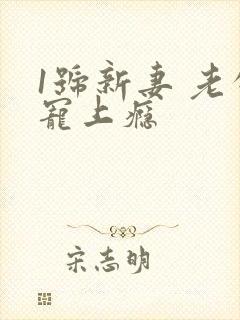 1號新妻 老
寵上癮
宋志明